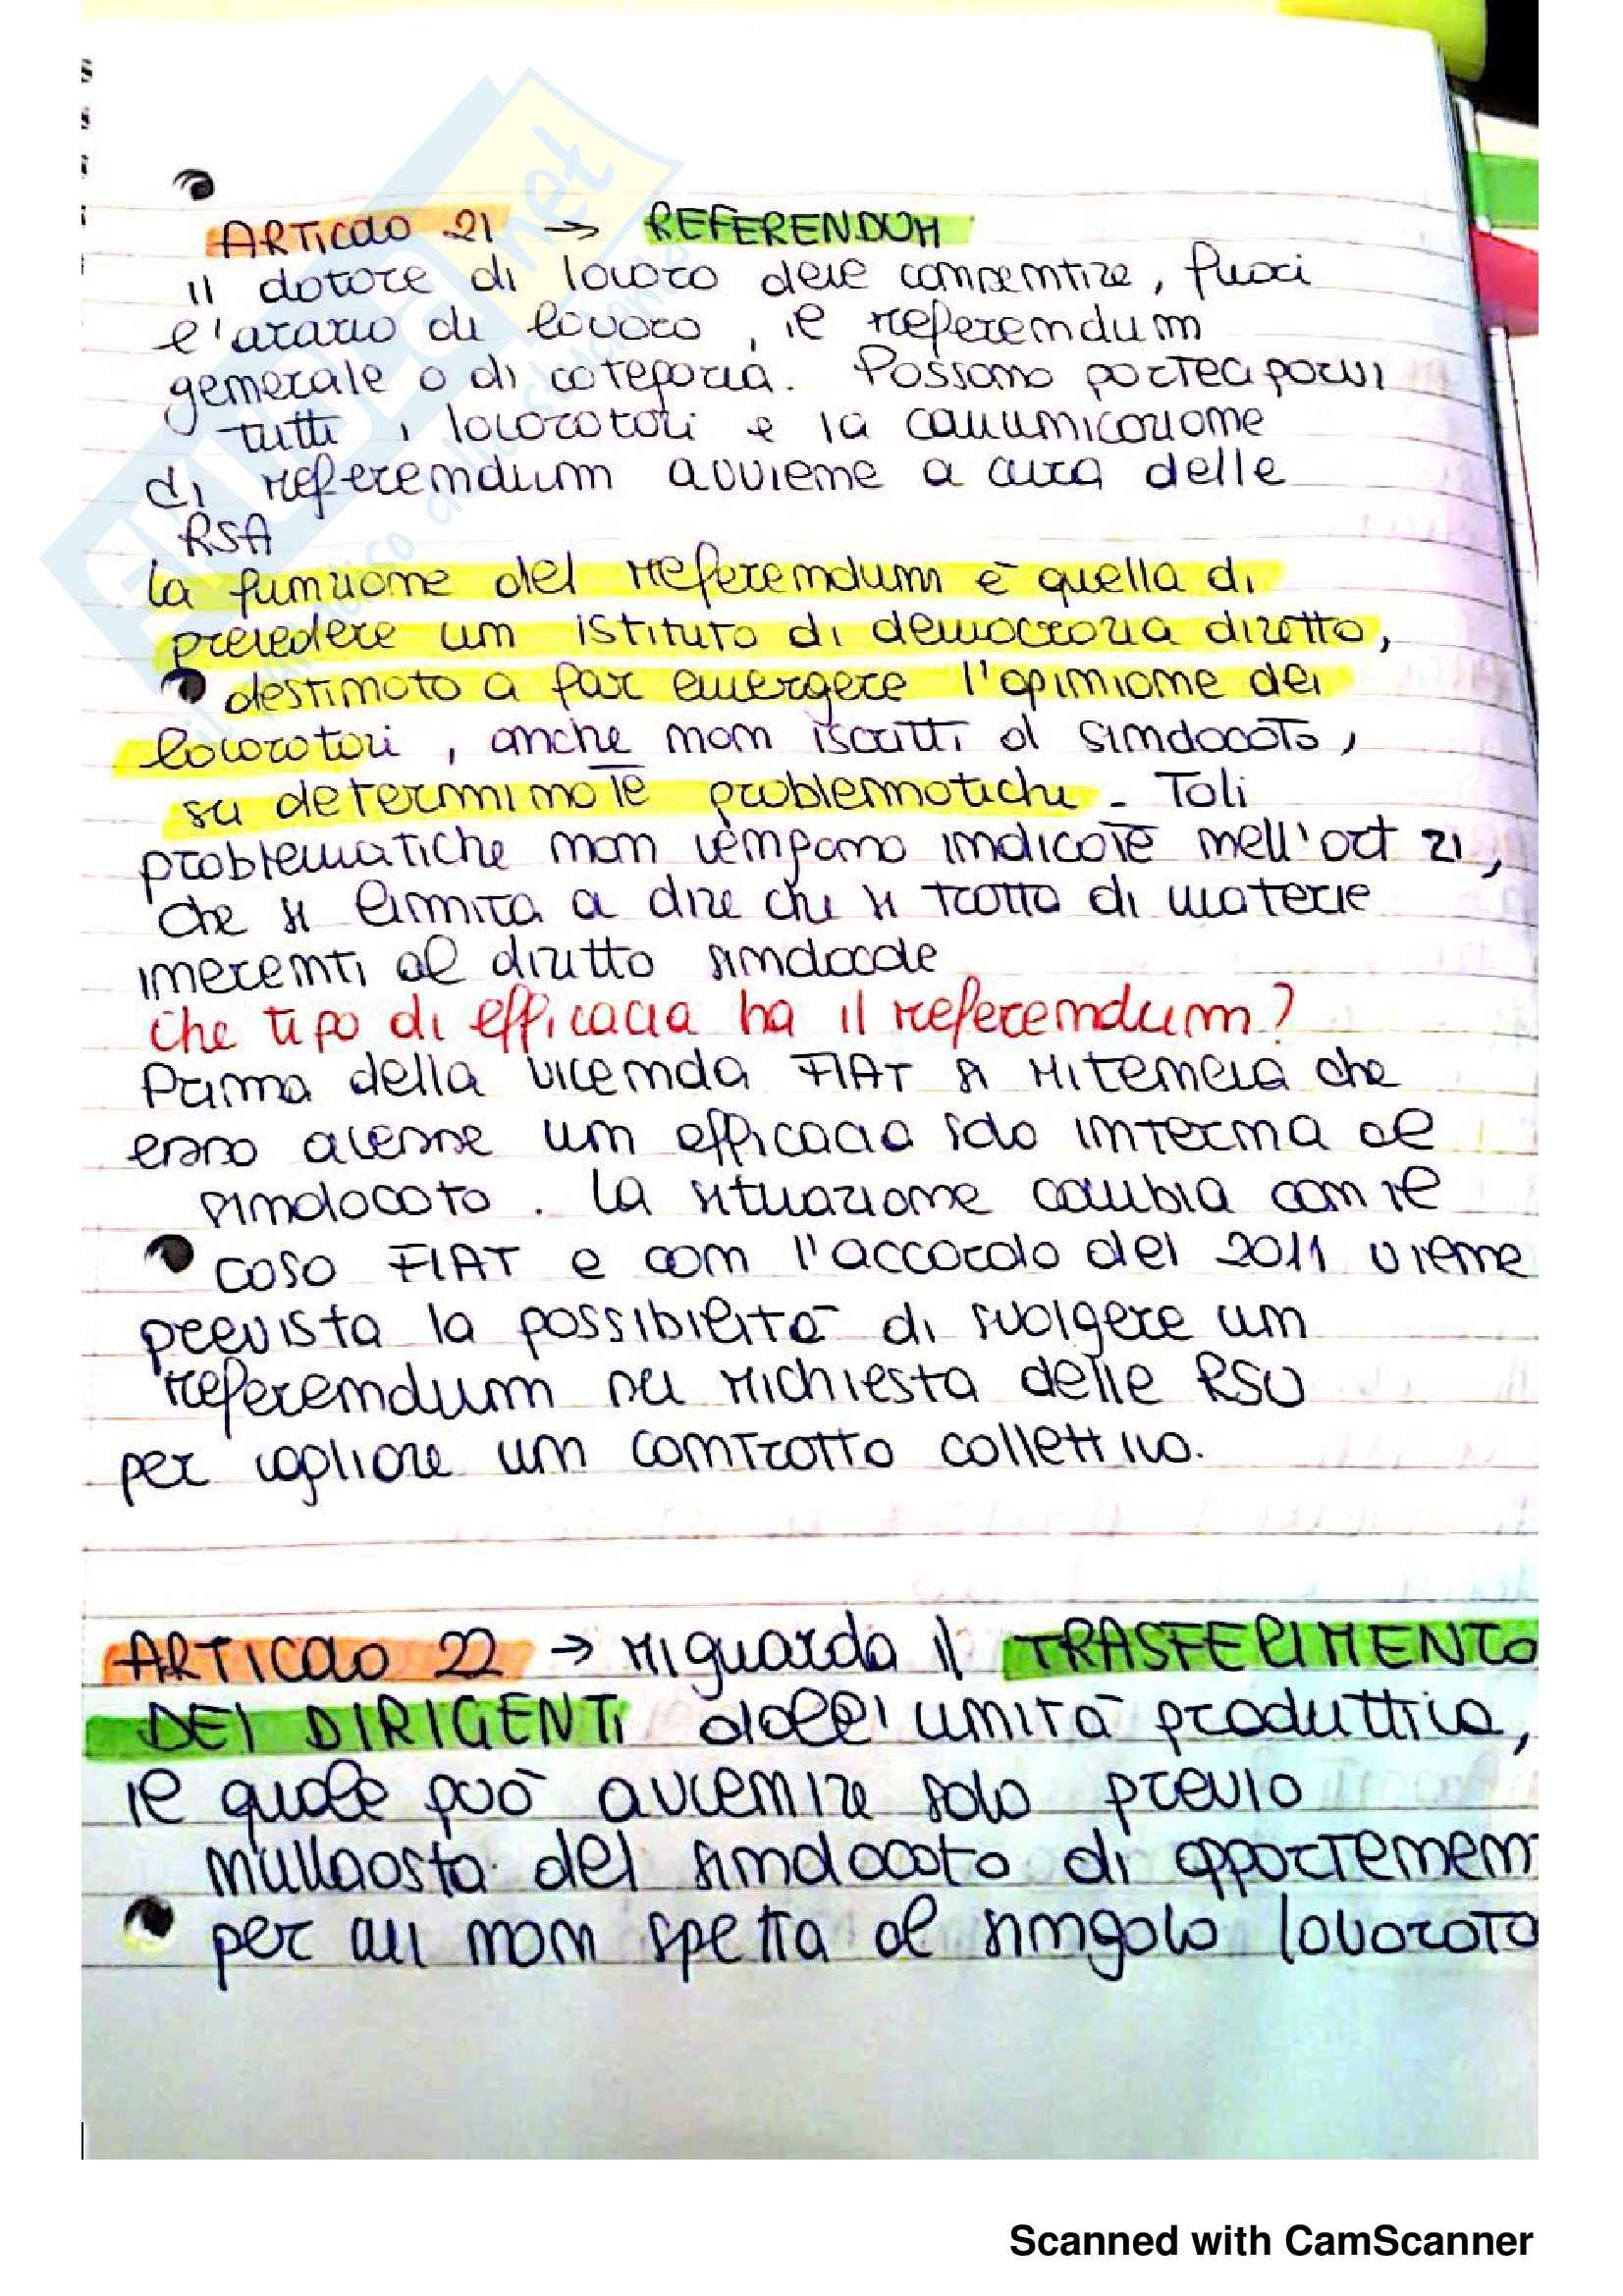 ARTICOLO 21 → REFERENDUM
Il datore di lavoro deve consentire, fuori
l'orario di lavoro, il referendum
generale o di categoria. Possono parteciparvi
tutti i lavoratori e la comunicazione
di referendum avviene a cura delle
RSA
La funzione del referendum è quella di
prevedere un istituto di democrazia diretta,
destinato a far emergere l'opinione dei
lavoratori, anche non iscritti al sindacato,
su determinate problematiche. Tali
problematiche non vengono indicate nell'art 21,
che si limita a dire che si tratta di materie
inerenti al diritto sindacale
Che tipo di efficacia ha il referendum?
Prima della vicenda FIAT si riteneva che
esso avesse un efficacia solo interna al
sindacato. La situazione cambia con il
caso FIAT e con l'accordo del 2011 viene
prevista la possibilità di svolgere un
referendum su richiesta delle RSU
per vagliare un contratto collettivo.
ARTICOLO 22 → riguarda il TRASFERIMENTO
DEI DIRIGENTI dall'unità produttiva,
il quale può avvenire solo previo
nullaosta del sindacato di appartenen
per cui non spetta al singolo lavorato
Scanned with CamScanner